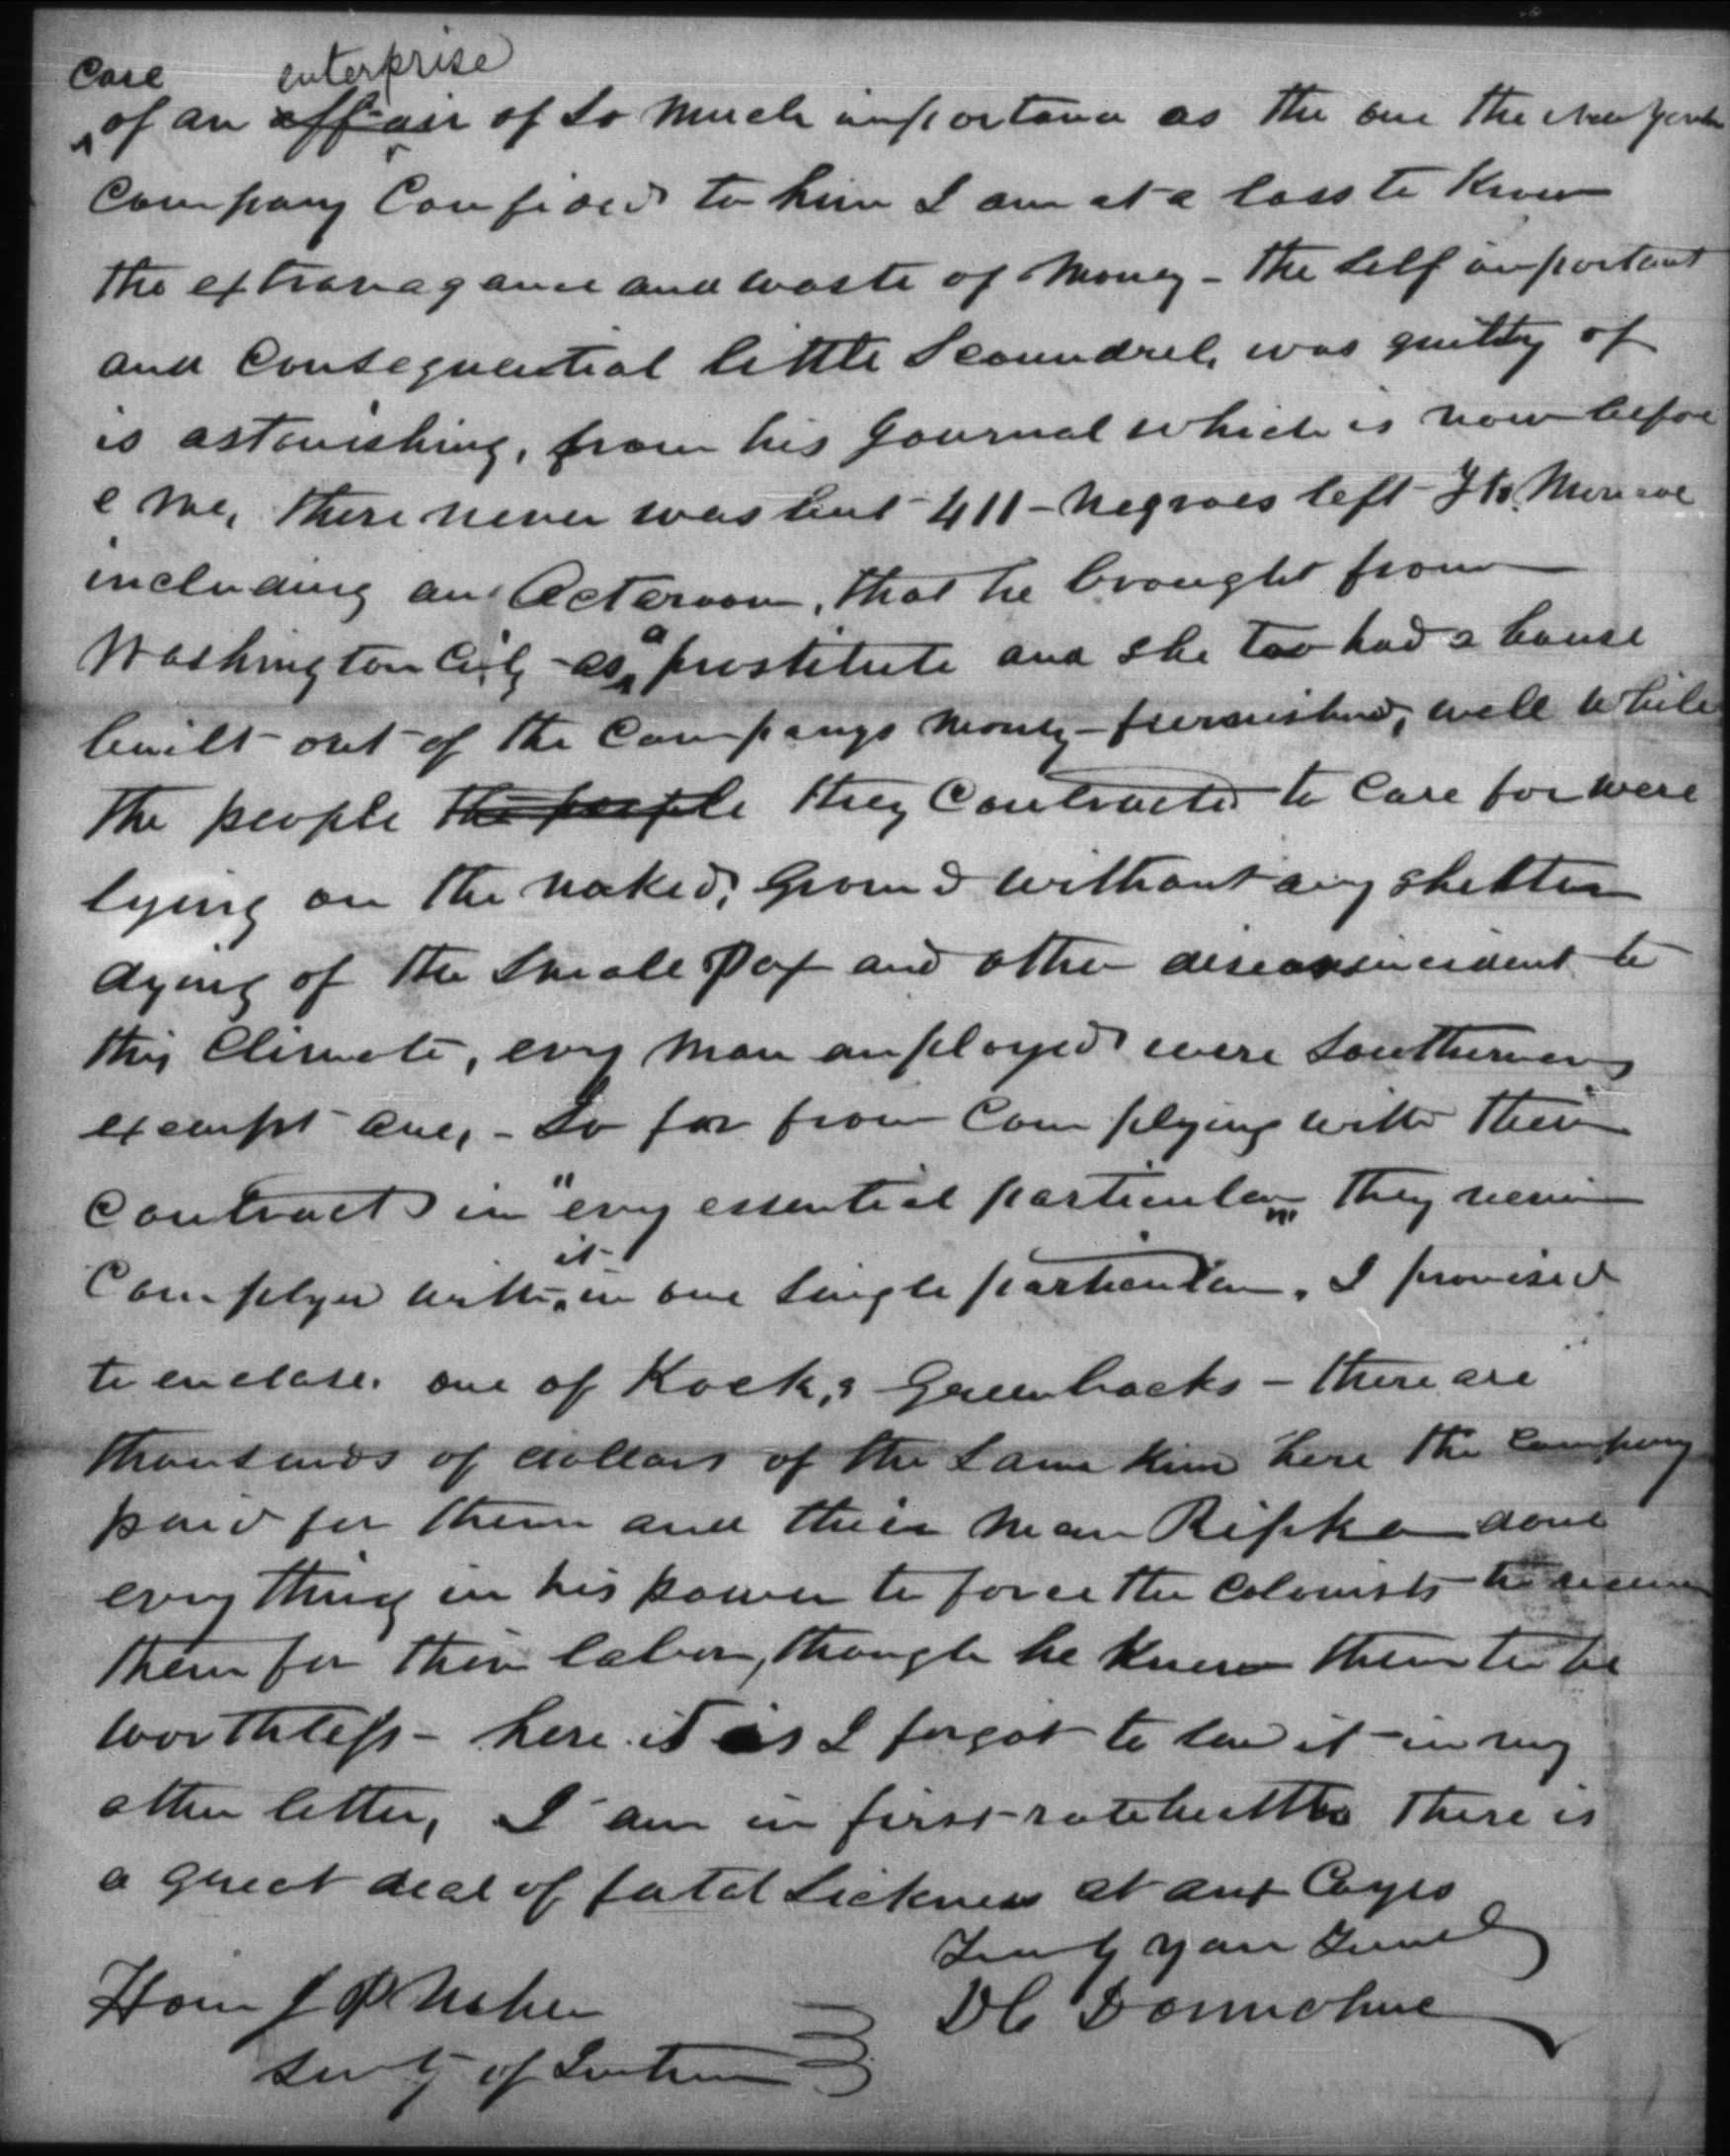 Care enterprise
of an affair of so much importance as the one the New York
Company Confided to him I am at a loss to Know
the extravagance and waste of Money - the self important
and Consequential little Scoundrel, was guilty of
is astonishing, from his Journal which is now befor
e me, there never was but - 411 - Negroes left Ft. Monroe
including an Octaroon, that he brought from
Washington City - as a prostitute and she too had a house
built out of the Companys Money - furnished, well while
the people the people they Contracted to Care for were
lying on the naked, Ground without any shelter
dying of the Small Pox and other diseases incident to
this Climate, every Man employed were Southerners
exempt one, - So far from Complying with their
Contract in "every essential particular" they never
Complyed with it in one single particular. I promised
to enclose. one of Kock,s Greenbacks - there are
thousands of dollars of the same kind here the Company
paid for them and their man Ripka done
every thing in his power to force the Colonists to receive
them for their labor, though he Knew them to be
worthless - here it is I forgot to send it in my
other letter, I am in first-rate health there is
a great deal of fatal sickness at aux Cayes
Truly your Friend
Hon J P Usher D C Donnohue
Secty of Interior